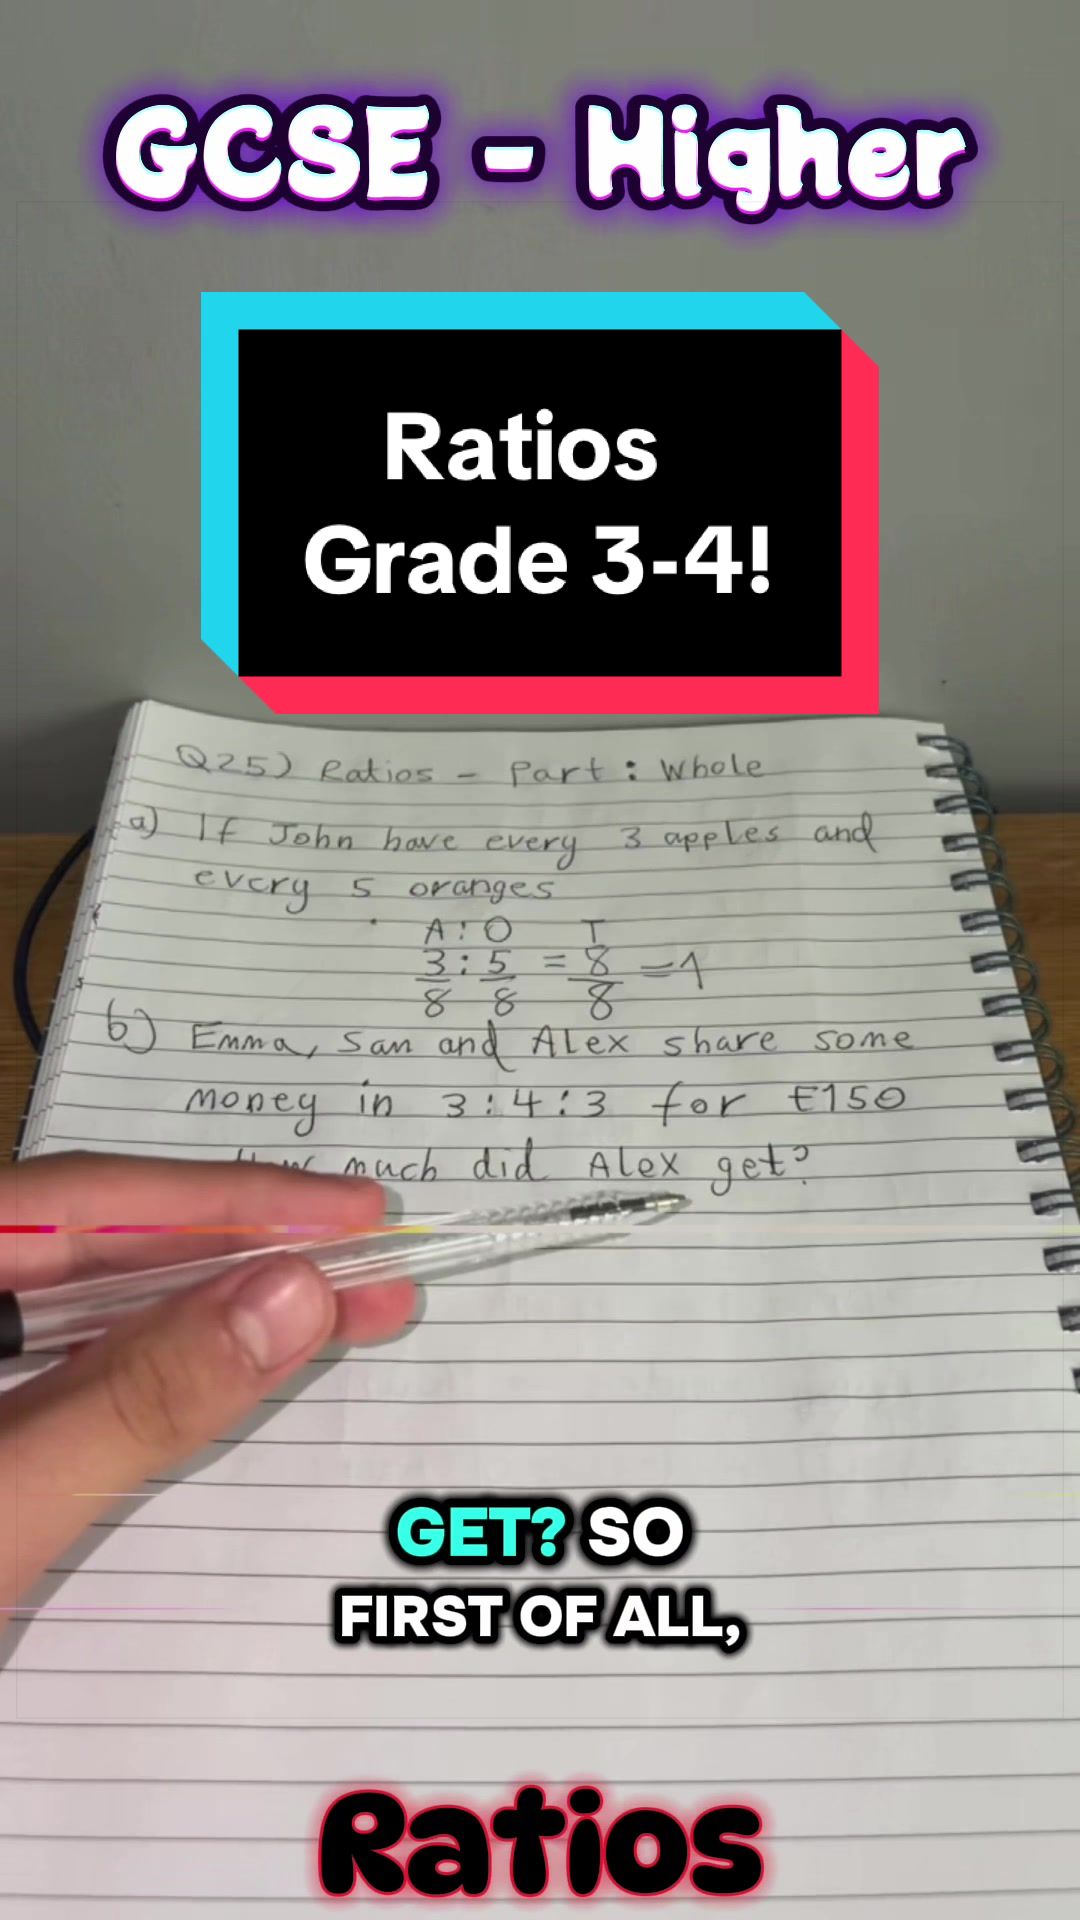 GCSE - Higher
Ratios
Grade 3-4!
Q25) Ratios - Part : Whole
a) If John have every 3 apples and
every 5 oranges
A : O T
3 : 5 = 8 = 1
8 8 8
b) Emma, Sam and Alex share some
money in 3 : 4 : 3 for £150
How much did Alex get?
GET? SO
FIRST OF ALL,
Ratios